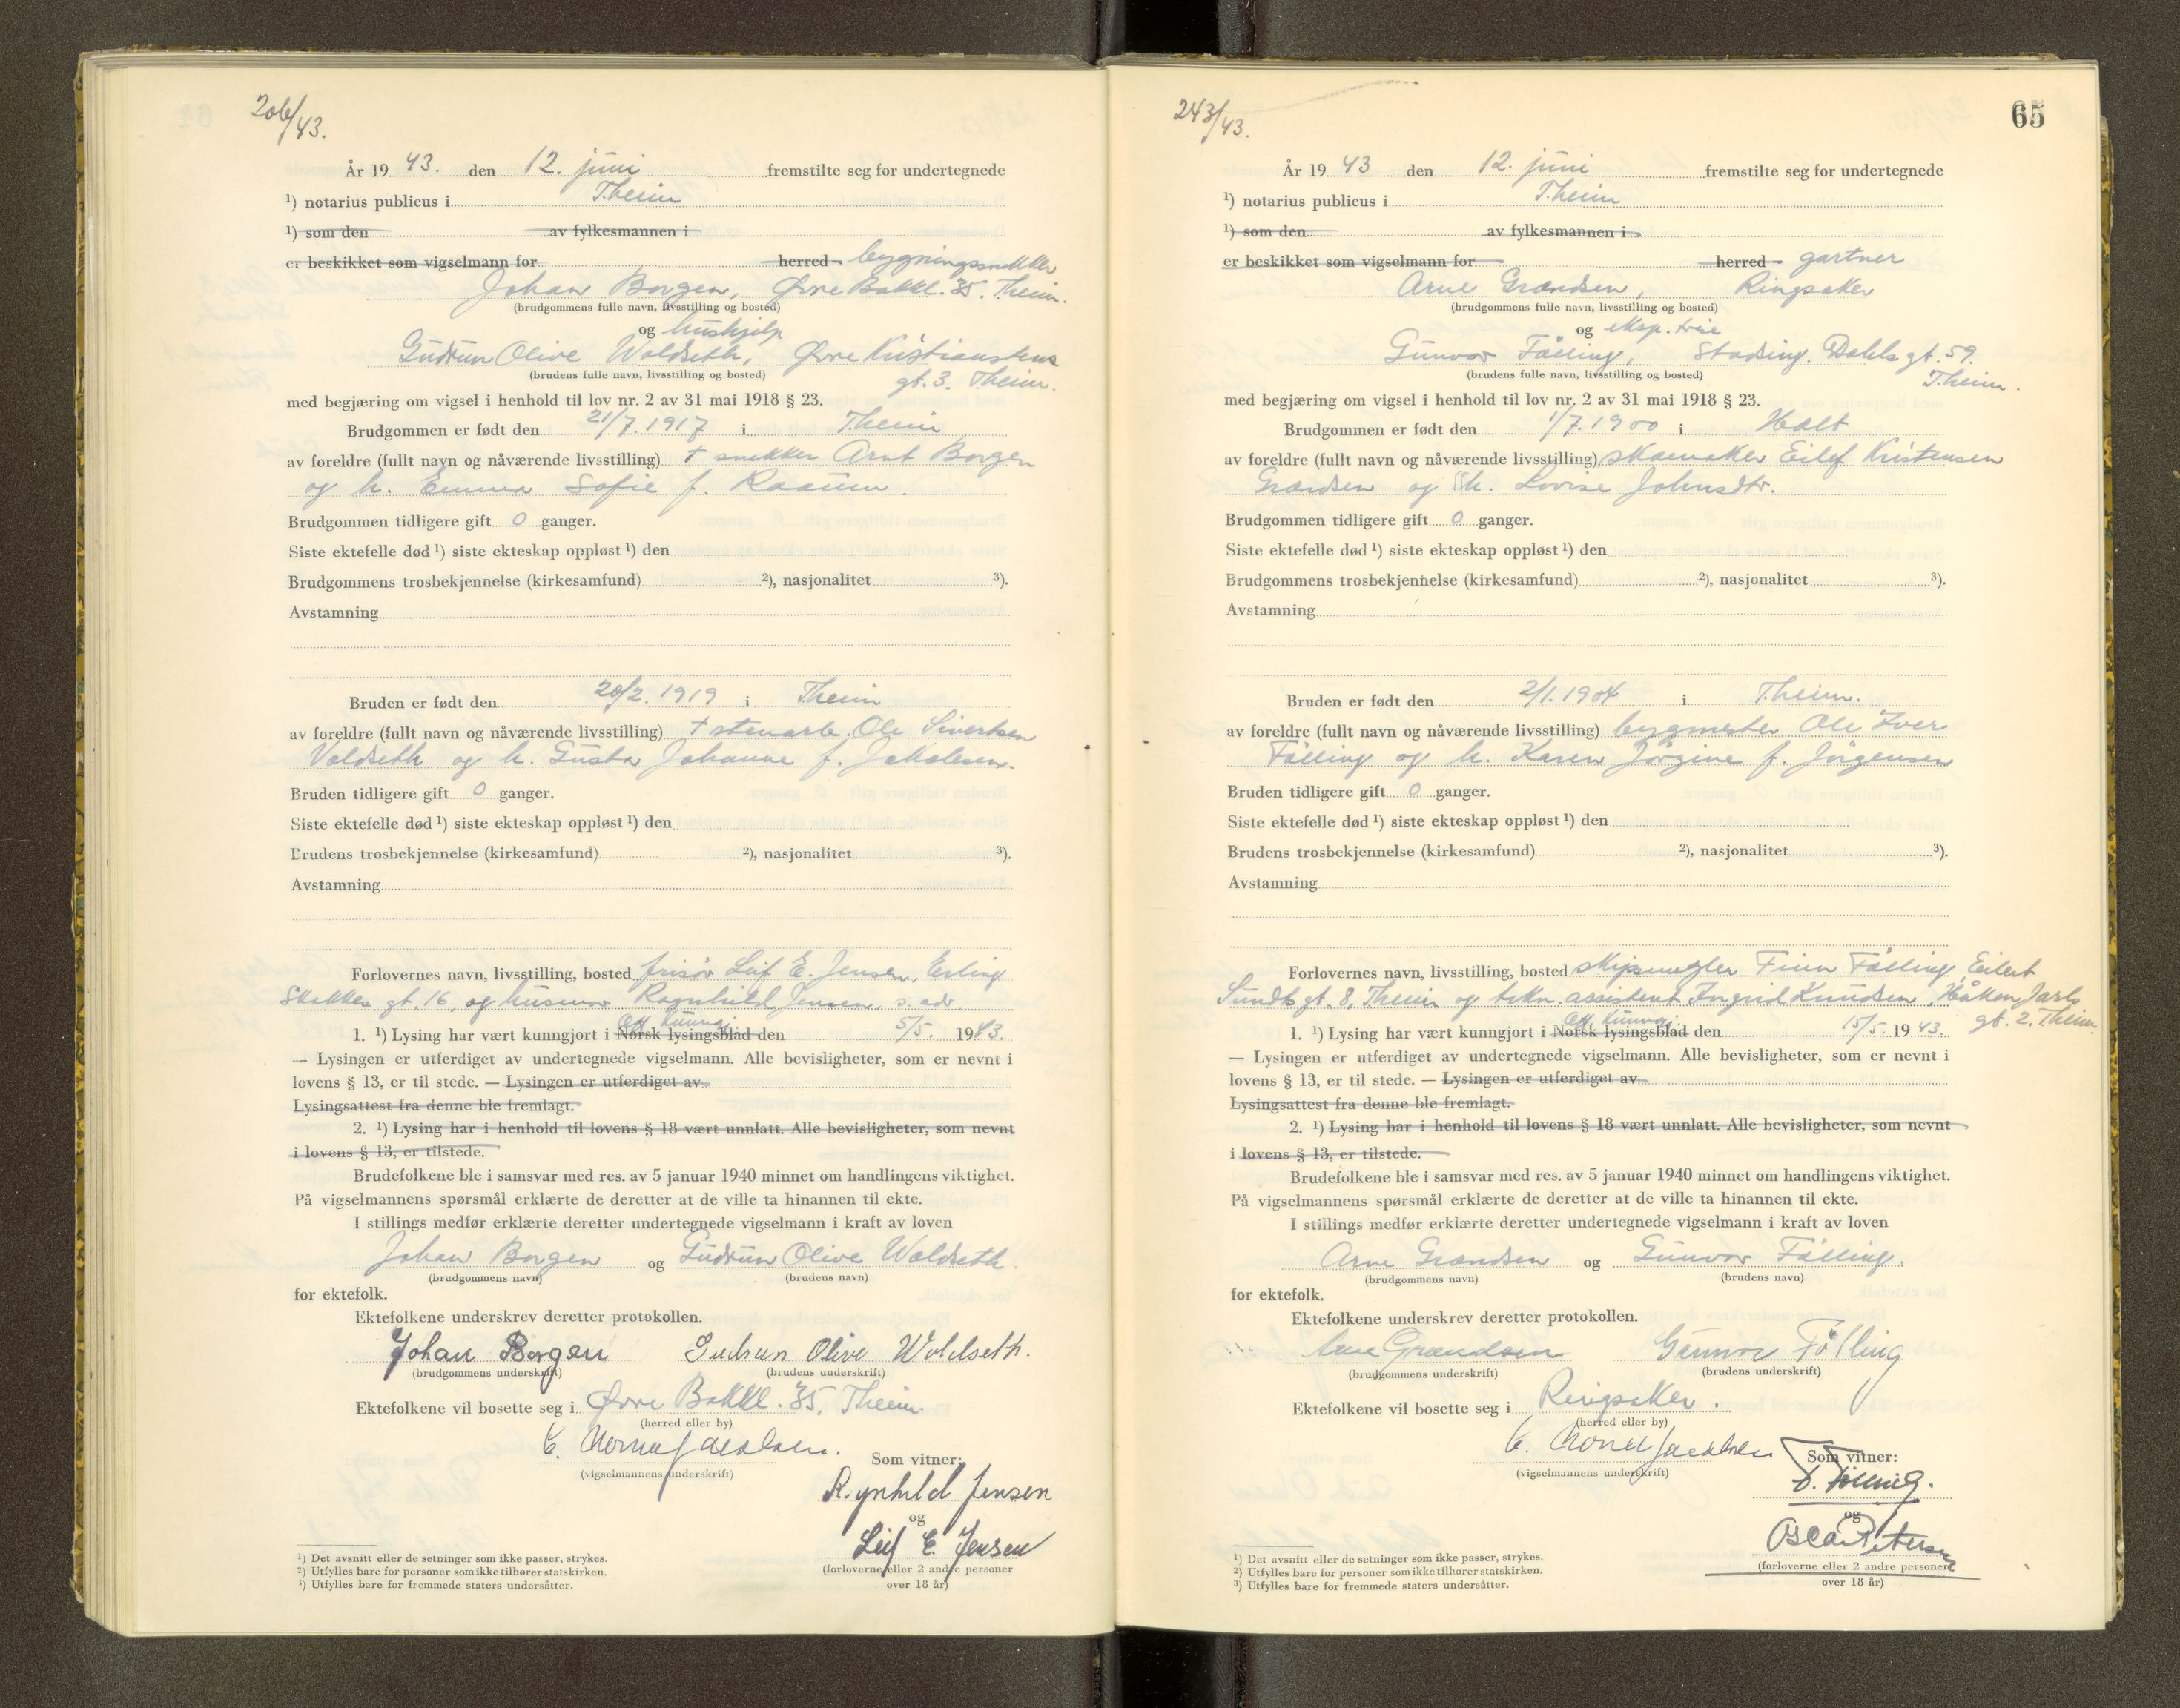 206/43.
År 19 43. den 12. juni fremstilte seg for undertegnede
¹) notarius publicus i Theim
¹) som den av fylkesmannen i
er beskikket som vigselmann for herred bygningssnekker
Johan Borgen, Øvre Bakkl. 35. Theim.
(brudgommens fulle navn, livsstilling og bosted)
og hushjelp
Gudrun Olive Woldseth, Øvre Kristianstens
(brudens fulle navn, livsstilling og bosted) gt. 3. Theim.
med begjæring om vigsel i henhold til lov nr. 2 av 31 mai 1918 § 23.
Brudgommen er født den 21/7.1917 i Theim
av foreldre (fullt navn og nåværende livsstilling) + snekker Arnt Borgen
og h. Emma Sofie f. Raaum.
Brudgommen tidligere gift 0 ganger.
Siste ektefelle død ¹) siste ekteskap oppløst ¹) den
Brudgommens trosbekjennelse (kirkesamfund) ²), nasjonalitet ³).
Avstamning
Bruden er født den 20/2. 1919 i Theim
av foreldre (fullt navn og nåværende livsstilling) + stenarb. Ole Sivertsen
Voldseth og h. Gusta Johanne f. Jakobsen.
Bruden tidligere gift 0 ganger.
Siste ektefelle død ¹) siste ekteskap oppløst ¹) den
Brudens trosbekjennelse (kirkesamfund) ²), nasjonalitet ³).
Avstamning
Forlovernes navn, livsstilling, bosted frisør Leif E. Jensen, Erling
Skakkes gt. 16, og husmor Ragnhild Jensen, s. adr.
Off. kunngj.
1. ¹) Lysing har vært kunngjort i Norsk lysingsblad den 5/5. 1943.
— Lysingen er utferdiget av undertegnede vigselmann. Alle bevisligheter, som er nevnt i
lovens § 13, er til stede. — Lysingen er utferdiget av
Lysingsattest fra denne ble fremlagt.
2. ¹) Lysing har i henhold til lovens § 18 vært unnlatt. Alle bevisligheter, som nevnt
i lovens § 13, er tilstede.
Brudefolkene ble i samsvar med res. av 5 januar 1940 minnet om handlingens viktighet.
På vigselmannens spørsmål erklærte de deretter at de ville ta hinannen til ekte.
I stillings medfør erklærte deretter undertegnede vigselmann i kraft av loven
Johan Borgen og Gudrun Olive Woldseth.
(brudgommens navn) (brudens navn)
for ektefolk.
Ektefolkene underskrev deretter protokollen.
Johan Borgen Gudrun Olive Woldseth.
(brudgommens underskrift) (brudens underskrift)
Ektefolkene vil bosette seg i Øvre Bakkl. 35, Theim.
(herred eller by)
(vigselmannens underskrift)
Som vitner:
Ragnhild Jensen
og
Leif E. Jensen
(forloverne eller 2 andre personer
over 18 år)
¹) Det avsnitt eller de setninger som ikke passer, strykes.
²) Utfylles bare for personer som ikke tilhører statskirken.
³) Utfylles bare for fremmede staters undersåtter.
243/43.
65
År 19 43 den 12. juni fremstilte seg for undertegnede
¹) notarius publicus i Theim
¹) som den av fylkesmannen i
er beskikket som vigselmann for herred gartner
Arne Grændsen, Ringsaker
(brudgommens fulle navn, livsstilling og bosted)
og eksp. trise
Gunvor Fölling, Stadsing. Dahls gt. 59.
(brudens fulle navn, livsstilling og bosted) Theim.
med begjæring om vigsel i henhold til lov nr. 2 av 31 mai 1918 § 23.
Brudgommen er født den 1/7.1900 i Holt
av foreldre (fullt navn og nåværende livsstilling) skomaker Eilef Kristensen
Grændsen og h. Lovise Johnsdtr.
Brudgommen tidligere gift 0 ganger.
Siste ektefelle død ¹) siste ekteskap oppløst ¹) den
Brudgommens trosbekjennelse (kirkesamfund) ²), nasjonalitet ³).
Avstamning
Bruden er født den 2/1.1904 i Theim.
av foreldre (fullt navn og nåværende livsstilling) bygmester Ole Iver
Fölling og h. Karen Jörgine f. Jörgensen
Bruden tidligere gift 0 ganger.
Siste ektefelle død ¹) siste ekteskap oppløst ¹) den
Brudens trosbekjennelse (kirkesamfund) ²), nasjonalitet ³).
Avstamning
Forlovernes navn, livsstilling, bosted skipsmegler Finn Fölling, Eilert
Sundts gt. 8, Theim og tekn. assistent Ingrid Knudsen, Håkon Jarls
gt. 2. Theim.
Off. kunngj.
1. ¹) Lysing har vært kunngjort i Norsk lysingsblad den 15/5. 1943.
— Lysingen er utferdiget av undertegnede vigselmann. Alle bevisligheter, som er nevnt i
lovens § 13, er til stede. — Lysingen er utferdiget av
Lysingsattest fra denne ble fremlagt.
2. ¹) Lysing har i henhold til lovens § 18 vært unnlatt. Alle bevisligheter, som nevnt
i lovens § 13, er tilstede.
Brudefolkene ble i samsvar med res. av 5 januar 1940 minnet om handlingens viktighet.
På vigselmannens spørsmål erklærte de deretter at de ville ta hinannen til ekte.
I stillings medfør erklærte deretter undertegnede vigselmann i kraft av loven
Arne Grændsen og Gunvor Fölling.
(brudgommens navn) (brudens navn)
for ektefolk.
Ektefolkene underskrev deretter protokollen.
Arne Grændsen Gunvor Fölling
(brudgommens underskrift) (brudens underskrift)
Ektefolkene vil bosette seg i Ringsaker.
(herred eller by)
(vigselmannens underskrift)
Som vitner:
Fölling.
og
Oscar Petersen
(forloverne eller 2 andre personer
over 18 år)
¹) Det avsnitt eller de setninger som ikke passer, strykes.
²) Utfylles bare for personer som ikke tilhører statskirken.
³) Utfylles bare for fremmede staters undersåtter.